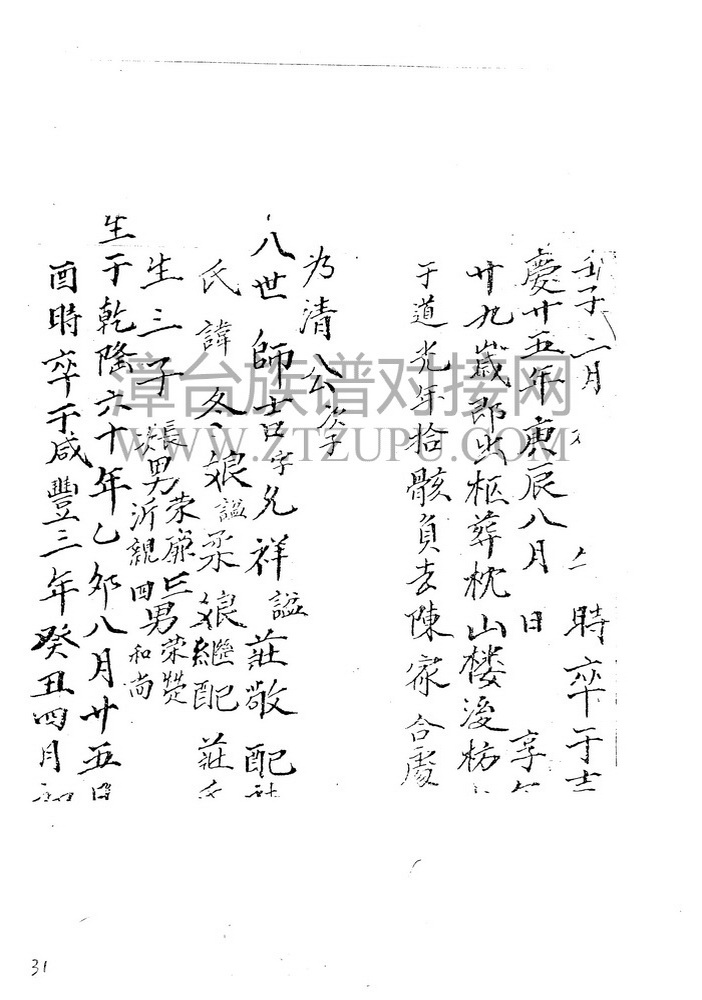 壬子二月 時卒于吉
慶廿五年庚辰八月 日 享年
廿九歲即出柩葬枕山楼後枋
于道光年拾骸負去陳家合處
為清公次子
八世 師吉字允祥謚莊敬配
氏諱冬娘謚柔娘繼配莊氏
生三子長男荣廉三男荣
沂親四和尚
生于乾隆六十年乙卯八月廿五日
酉時卒于咸豐三年癸丑四月初
漳台族谱对接网
WWW.ZTZUPU.COM
31